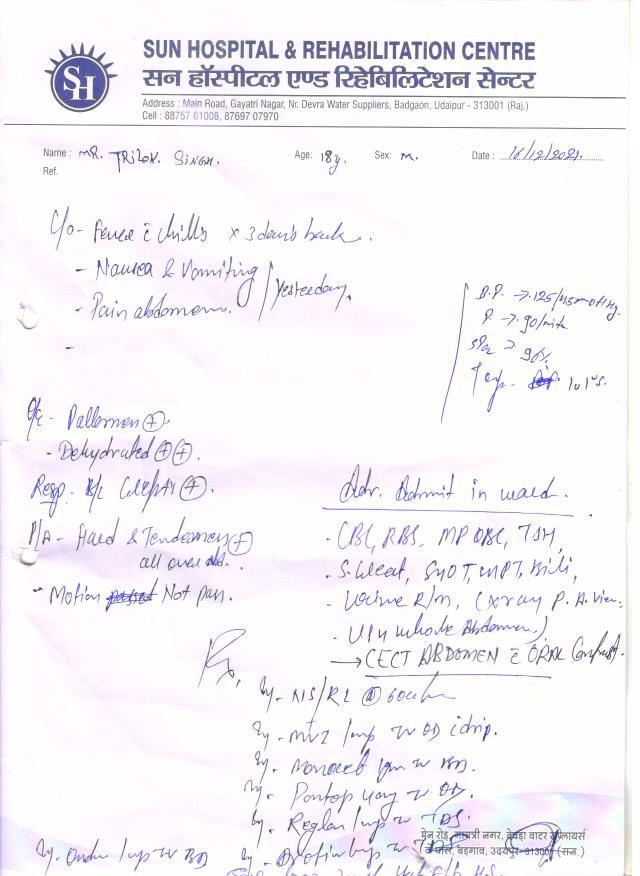 SH
SUN HOSPITAL & REHABILITATION CENTRE
सन हॉस्पीटल एण्ड रिहेबिलिटेशन सेन्टर
Address : Main Road, Gayatri Nagar, Nr. Devra Water Suppliers, Badgaon, Udaipur - 313001 (Raj.)
Cell : 88757 61008, 87697 07970
Name : MR. TRILOK SINGH. Age: 18y. Sex: M. Date : 16/12/2021.
Ref.
C/o - Fever c̄ chills x 3 days back.
- Nausea & Vomiting
- Pain abdomen. / Yesterday.
B.P. →
P. → 90/mit
SPO2 → 96%
Temp - 101°F.
O/E - (+).
- Dehydrated (+)(+).
Resp - B/L (+).
P/A - Hard & Tenderness (+)
all over Abd.
- Motion Not pass.
Adv. Admit in ward.
- CBC, RBS, MP TSH,
- S. SGOT, SGPT, Bili,
- Urine R/M, (Xray P.A. View.
- whole Abdomen)
→ CECT ABDOMEN c̄ ORAL Contrast.
Rx,
Iy - NS/RL @
Iy - MVI 1amp IV OD c̄ drip.
Iy - Monocef 1gm IV BD.
Iy - Pantop 40mg IV OD.
Iy - Reglan 1amp IV TDS.
Iy - 1amp IV BD
Iy - Drotin 1amp IV
मेन रोड़, गायत्री नगर, देवड़ा वाटर सप्लायर्स
के पास, बड़गांव, उदयपुर-313001 (राज.)